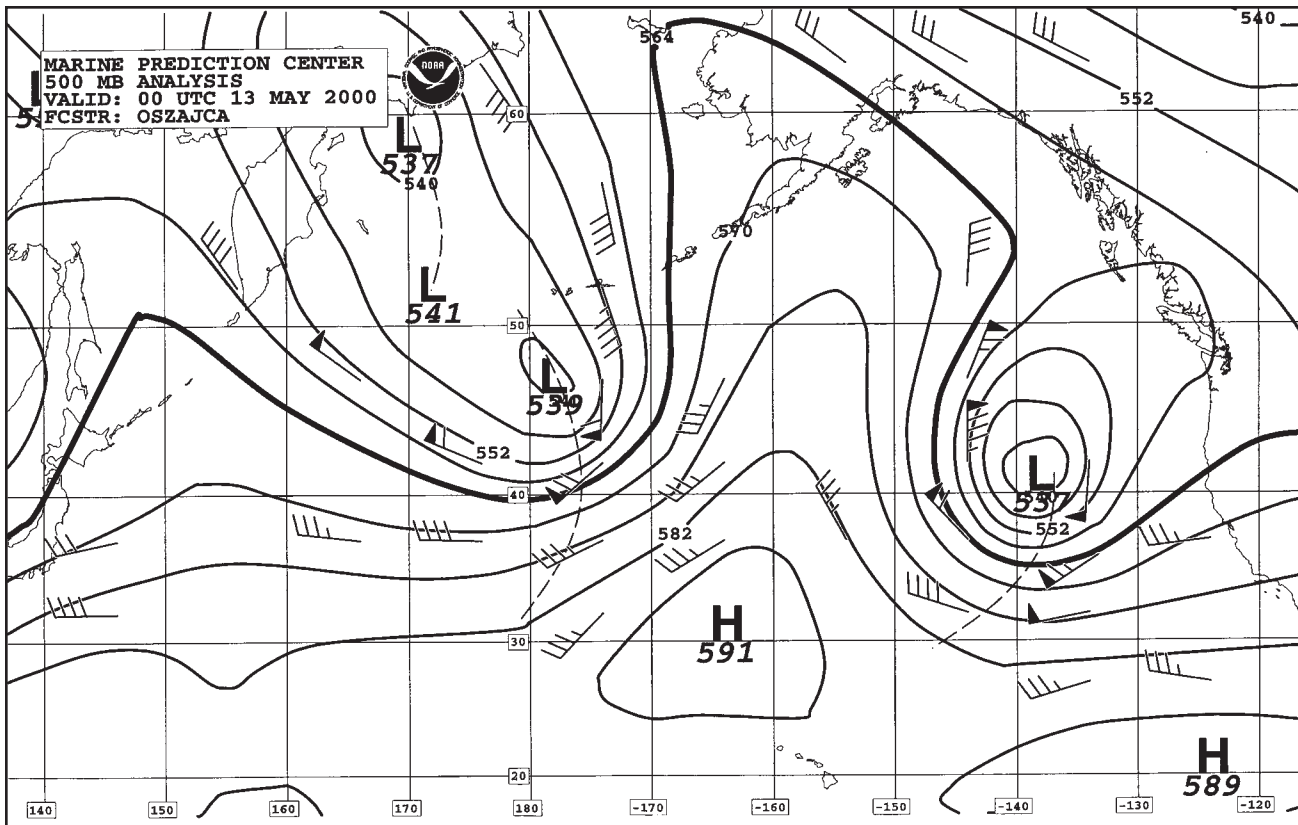 MARINE PREDICTION CENTER
500 MB ANALYSIS
VALID: 00 UTC 13 MAY 2000
FCSTR: OSZAJCA
NOAA
564
540
552
60
L
537
540
570
L
541
50
L
539
552
L
537
552
40
582
H
591
30
H
589
20
140
150
160
170
180
-170
-160
-150
-140
-130
-120